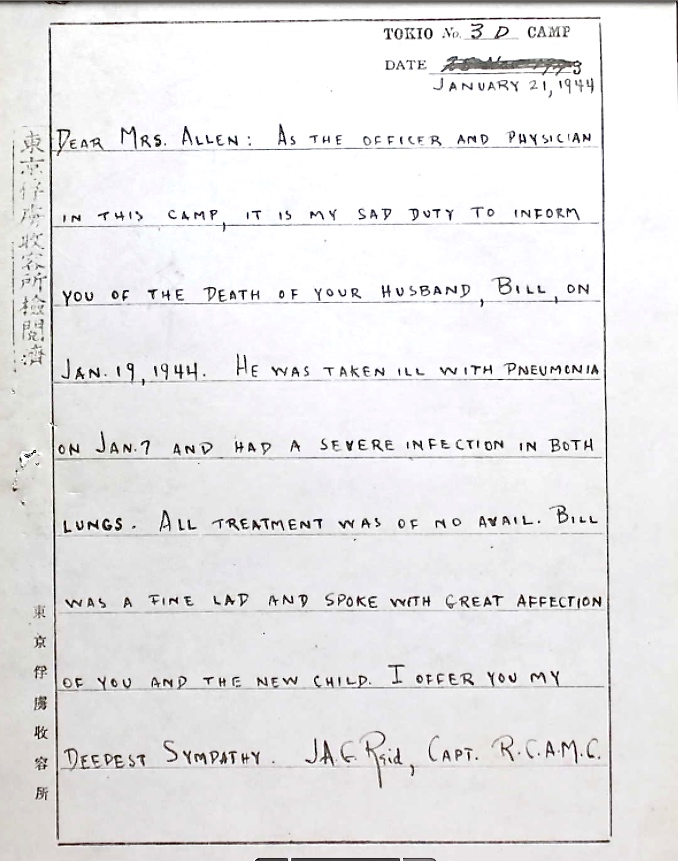 TOKIO No. 3 D CAMP
DATE
JANUARY 21, 1944
DEAR MRS. ALLEN: AS THE OFFICER AND PHYSICIAN
IN THIS CAMP, IT IS MY SAD DUTY TO INFORM
YOU OF THE DEATH OF YOUR HUSBAND, BILL, ON
JAN. 19, 1944. HE WAS TAKEN ILL WITH PNEUMONIA
ON JAN. 7 AND HAD A SEVERE INFECTION IN BOTH
LUNGS. ALL TREATMENT WAS OF NO AVAIL. BILL
WAS A FINE LAD AND SPOKE WITH GREAT AFFECTION
OF YOU AND THE NEW CHILD. I OFFER YOU MY
DEEPEST SYMPATHY. J.A.G. Reid, CAPT. R.C.A.M.C.
東京俘虜收容所檢閲濟
東京俘虜收容所